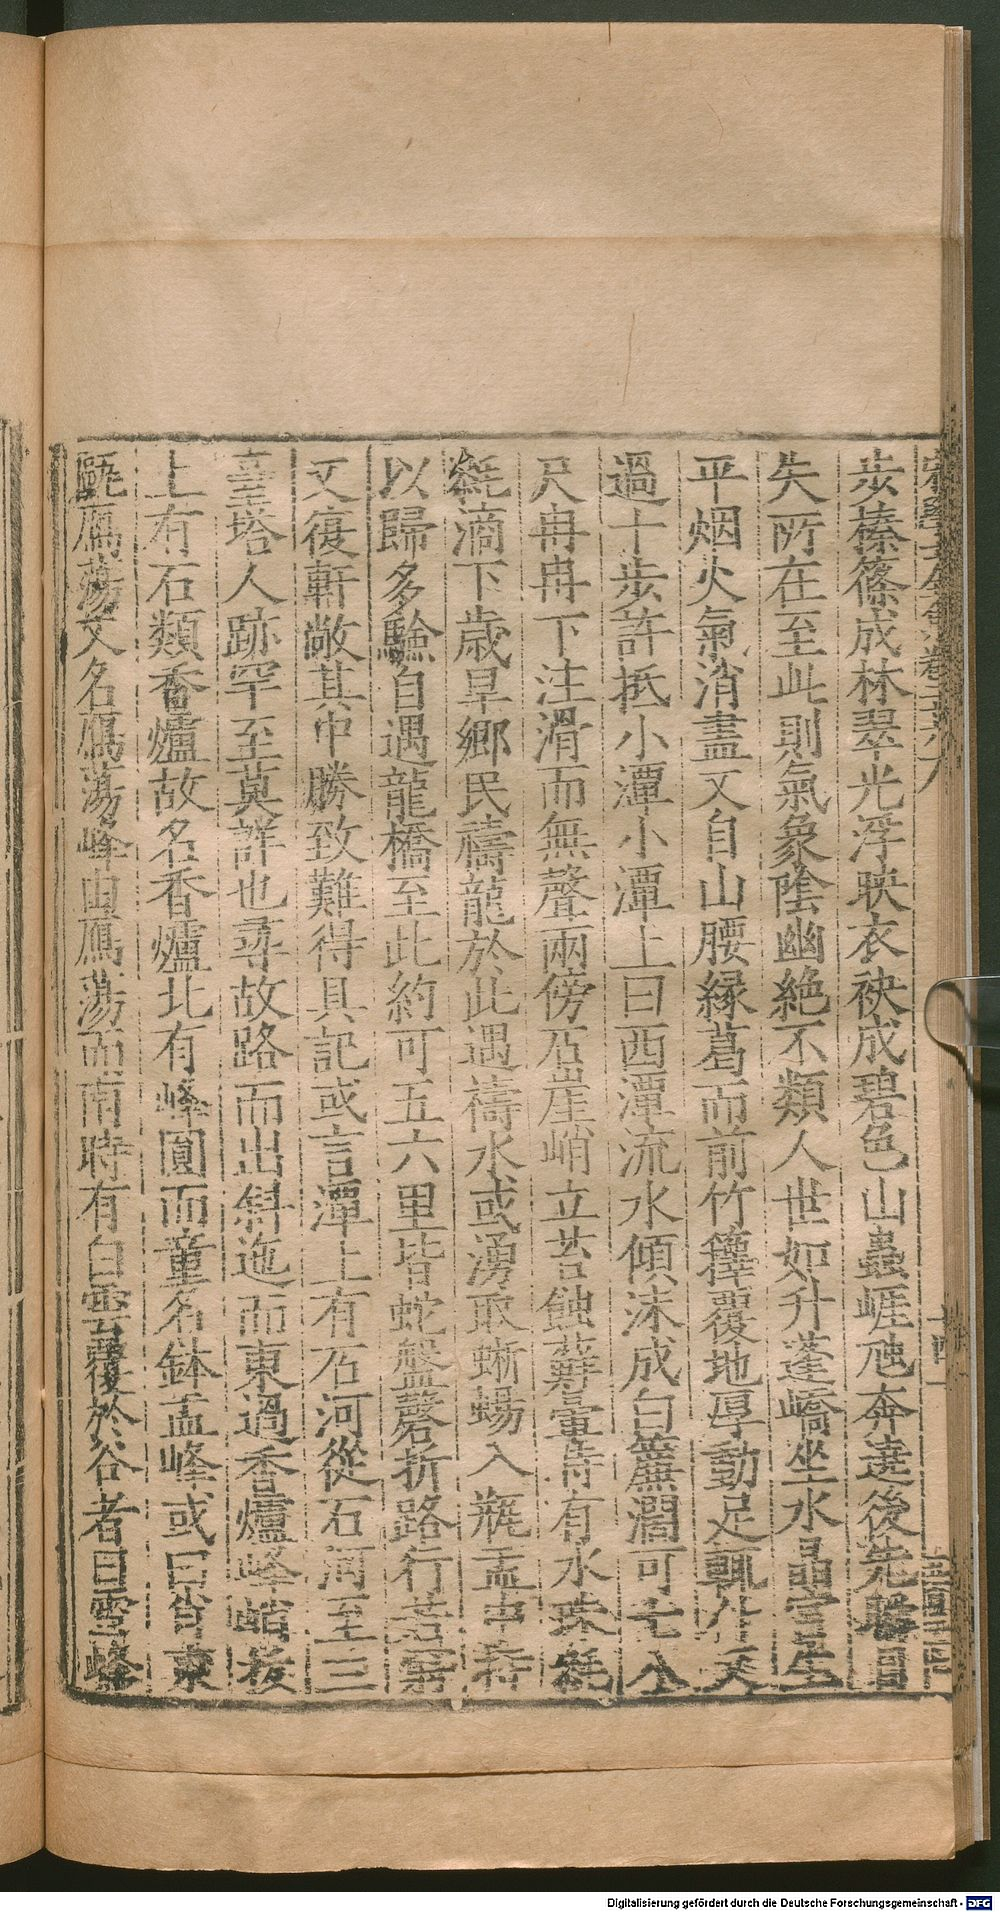 宋學士全集卷二十八
步榛篠成林翠光浮映衣袂成碧色山蟲崕虺奔遶後先駭目
失所在至此則氣象陰幽絶不類人世如升蓬嶠坐水晶宮生
平烟火氣消盡又自山腰縁葛而前竹籜覆地厚動足輒仆又
過十步許抵小潭小潭上曰西潭流水傾沫成白簾濶可七八
尺冉冉下注滑而無聲兩傍石崖峭立苔蝕蘚暈時有水珠毿
毿滴下歲旱鄉民禱龍於此遇禱水或湧取蜥蜴入瓶盂中持
以歸多驗自遇龍橋至此約可五六里皆蛇盤磬折路行若窮
又復軒敞其中勝致難得具記或言潭上有石河從石河至三
臺塔人跡罕至莫詳也尋故路而出斜迤而東過香爐峰峭拔
上有石類香爐故名香爐北有峰圓而童名鉢盂峰或曰肖東
甌鴈蕩又名鴈蕩峰由鴈蕩而南時有白雲覆於谷者曰雲峰
Digitalisierung gefördert durch die Deutsche Forschungsgemeinschaft - DFG